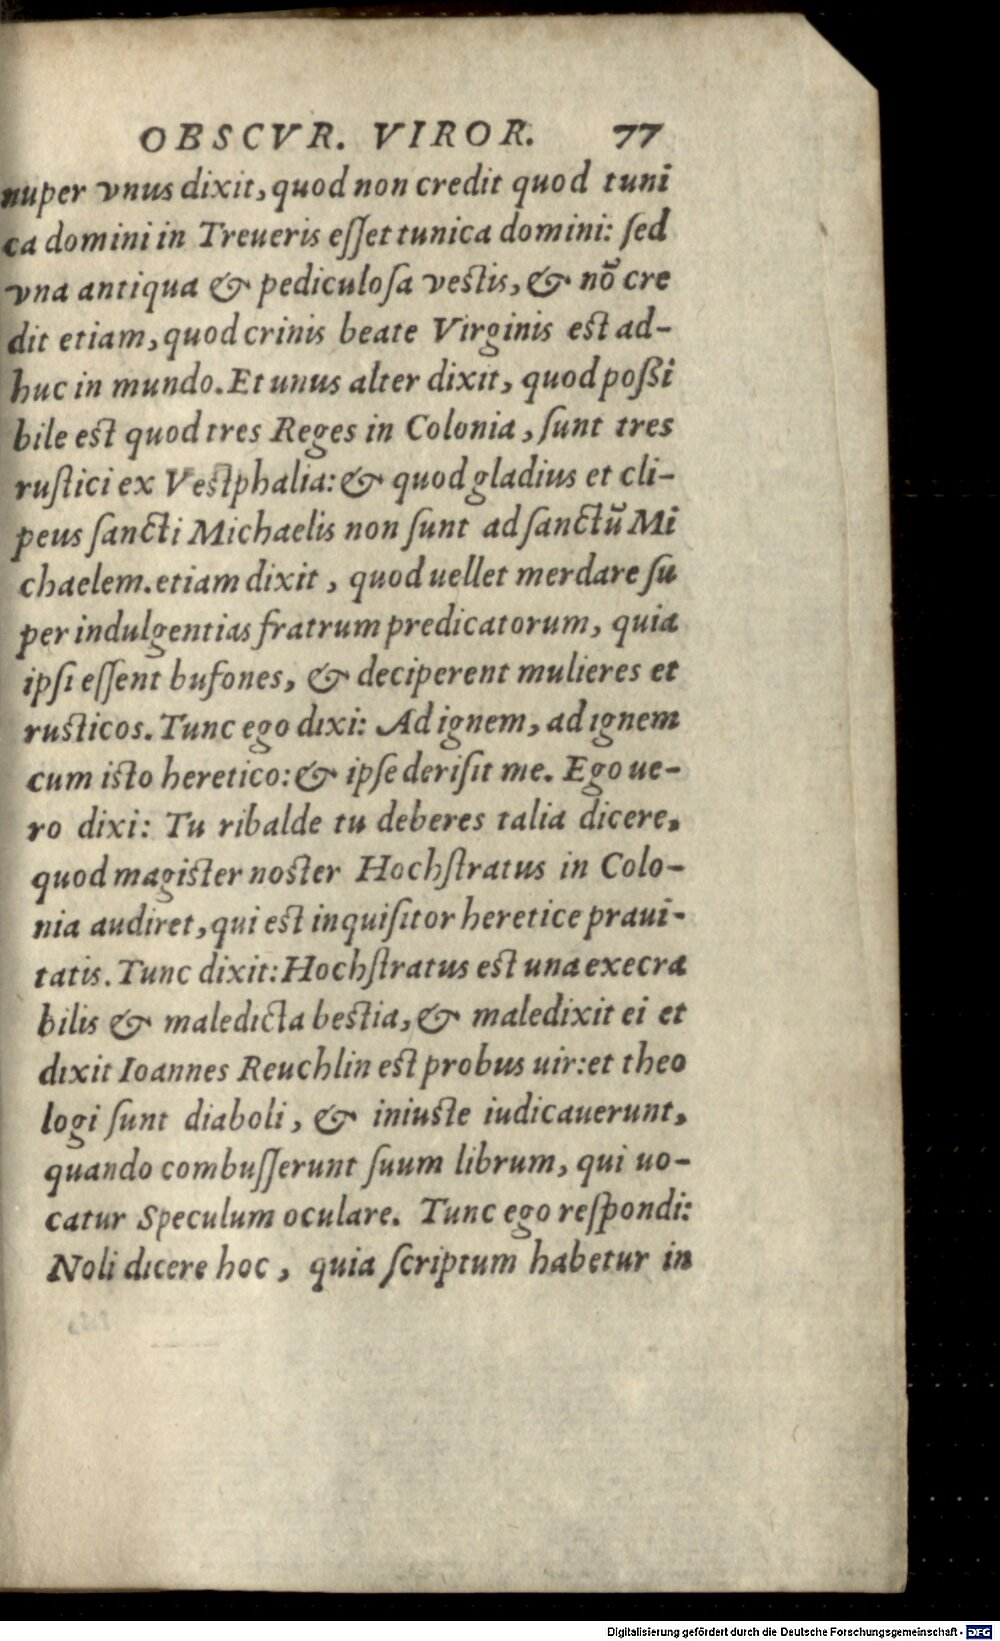 OBSCVR. VIROR. 77
nuper vnus dixit, quod non credit quod tuni
ca domini in Treueris eſſet tunica domini: ſed
vna antiqua & pediculoſa veſtis, & nõ cre
dit etiam, quod crinis beate Virginis eſt ad-
huc in mundo. Et unus alter dixit, quod poßi
bile eſt quod tres Reges in Colonia, ſunt tres
ruſtici ex Veſtphalia: & quod gladius et cli-
peus ſancti Michaelis non ſunt ad ſanctũ Mi
chaelem. etiam dixit, quod uellet merdare ſu
per indulgentias fratrum predicatorum, quia
ipſi eſſent bufones, & deciperent mulieres et
ruſticos. Tunc ego dixi: Ad ignem, ad ignem
cum iſto heretico: & ipſe deriſit me. Ego ue-
ro dixi: Tu ribalde tu deberes talia dicere,
quod magiſter noſter Hochſtratus in Colo-
nia audiret, qui eſt inquiſitor heretice praui-
tatis. Tunc dixit: Hochſtratus eſt una execra
bilis & maledicta beſtia, & maledixit ei et
dixit Ioannes Reuchlin eſt probus uir: et theo
logi ſunt diaboli, & iniuſte iudicauerunt,
quando combuſſerunt ſuum librum, qui uo-
catur Speculum oculare. Tunc ego reſpondi:
Noli dicere hoc, quia ſcriptum habetur in
Digitalisierung gefördert durch die Deutsche Forschungsgemeinschaft - DFG